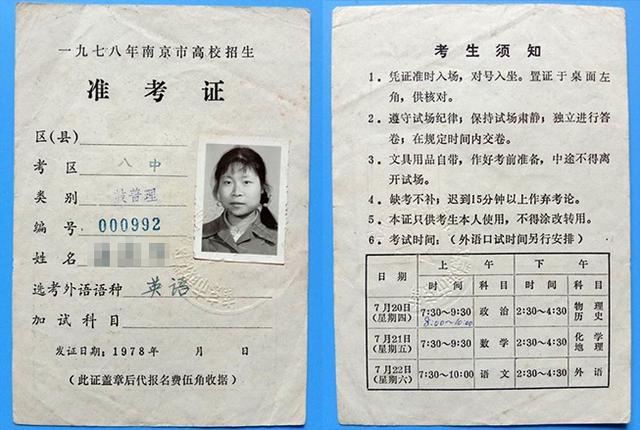 一九七八年南京市高校招生
准考证
区(县)
考区 八中
类别 普理
编号 000992
姓名
选考外语语种 英语
加试科目
发证日期：1978年 月 日
(此证盖章后代报名费伍角收据)
考生须知
1．凭证准时入场，对号入坐。置证于桌面左
角，供核对。
2．遵守试场纪律；保持试场肃静；独立进行答
卷；在规定时间内交卷。
3．文具用品自带，作好考前准备，中途不得离
开试场。
4．缺考不补；迟到15分钟以上作弃考论。
5．本证只供考生本人使用，不得涂改转用。
6．考试时间：(外语口试时间另行安排)
日期 上午 下午
时间 科目 时间 科目
7月20日(星期四) 7:30～9:30 8:00～10:00 政治 2:30～4:30 物理 历史
7月21日(星期五) 7:30～9:30 数学 2:30～4:30 化学 地理
7月22日(星期六) 7:30～10:00 语文 2:30～4:30 外语